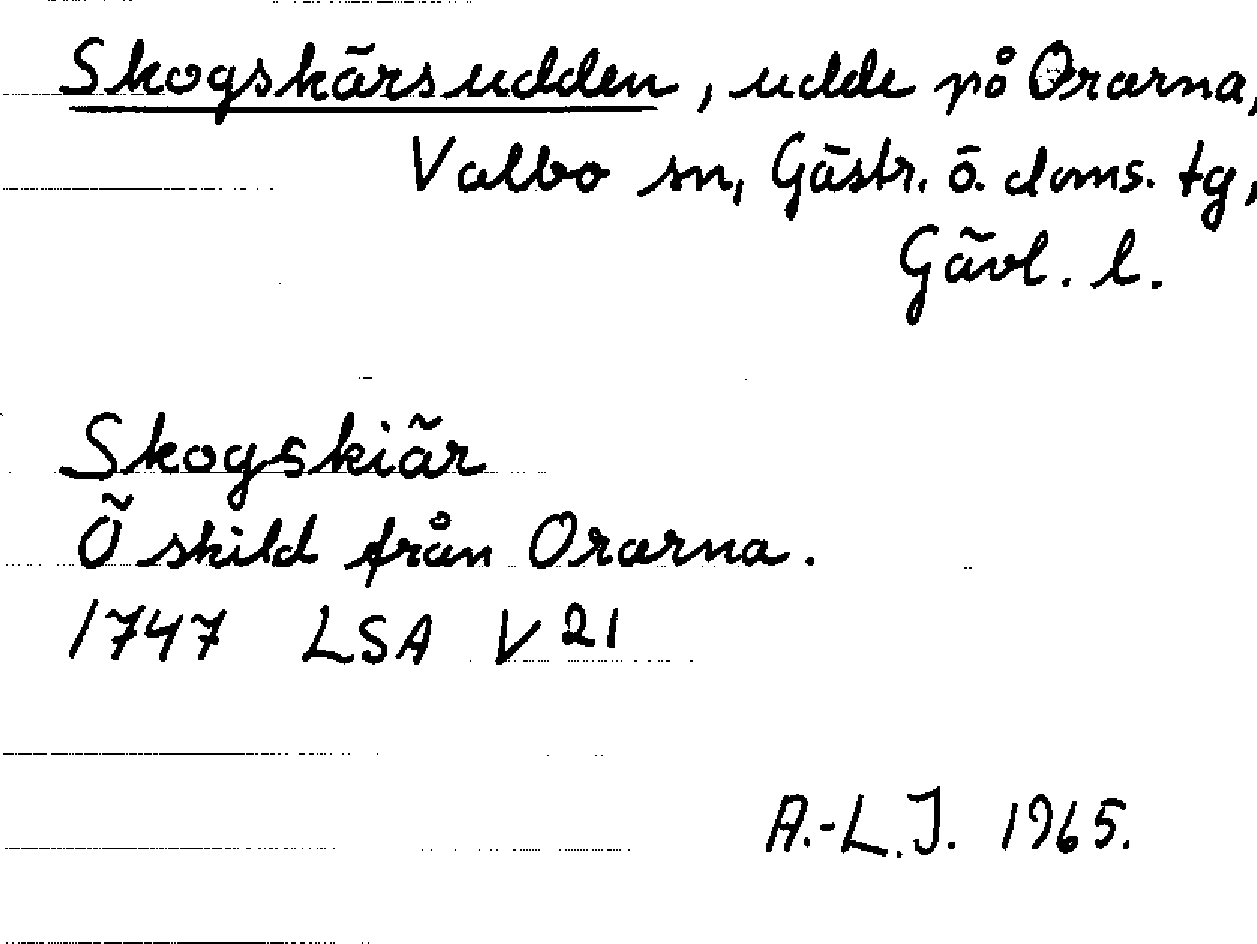 Skogskärsudden, udde på Orarna,
Valbo sn, Gästr. ö. doms. tg,
Gävl. l.
Skogskiär
Ö skild från Orarna.
1747 LSA V 21
A.-L. J. 1965.